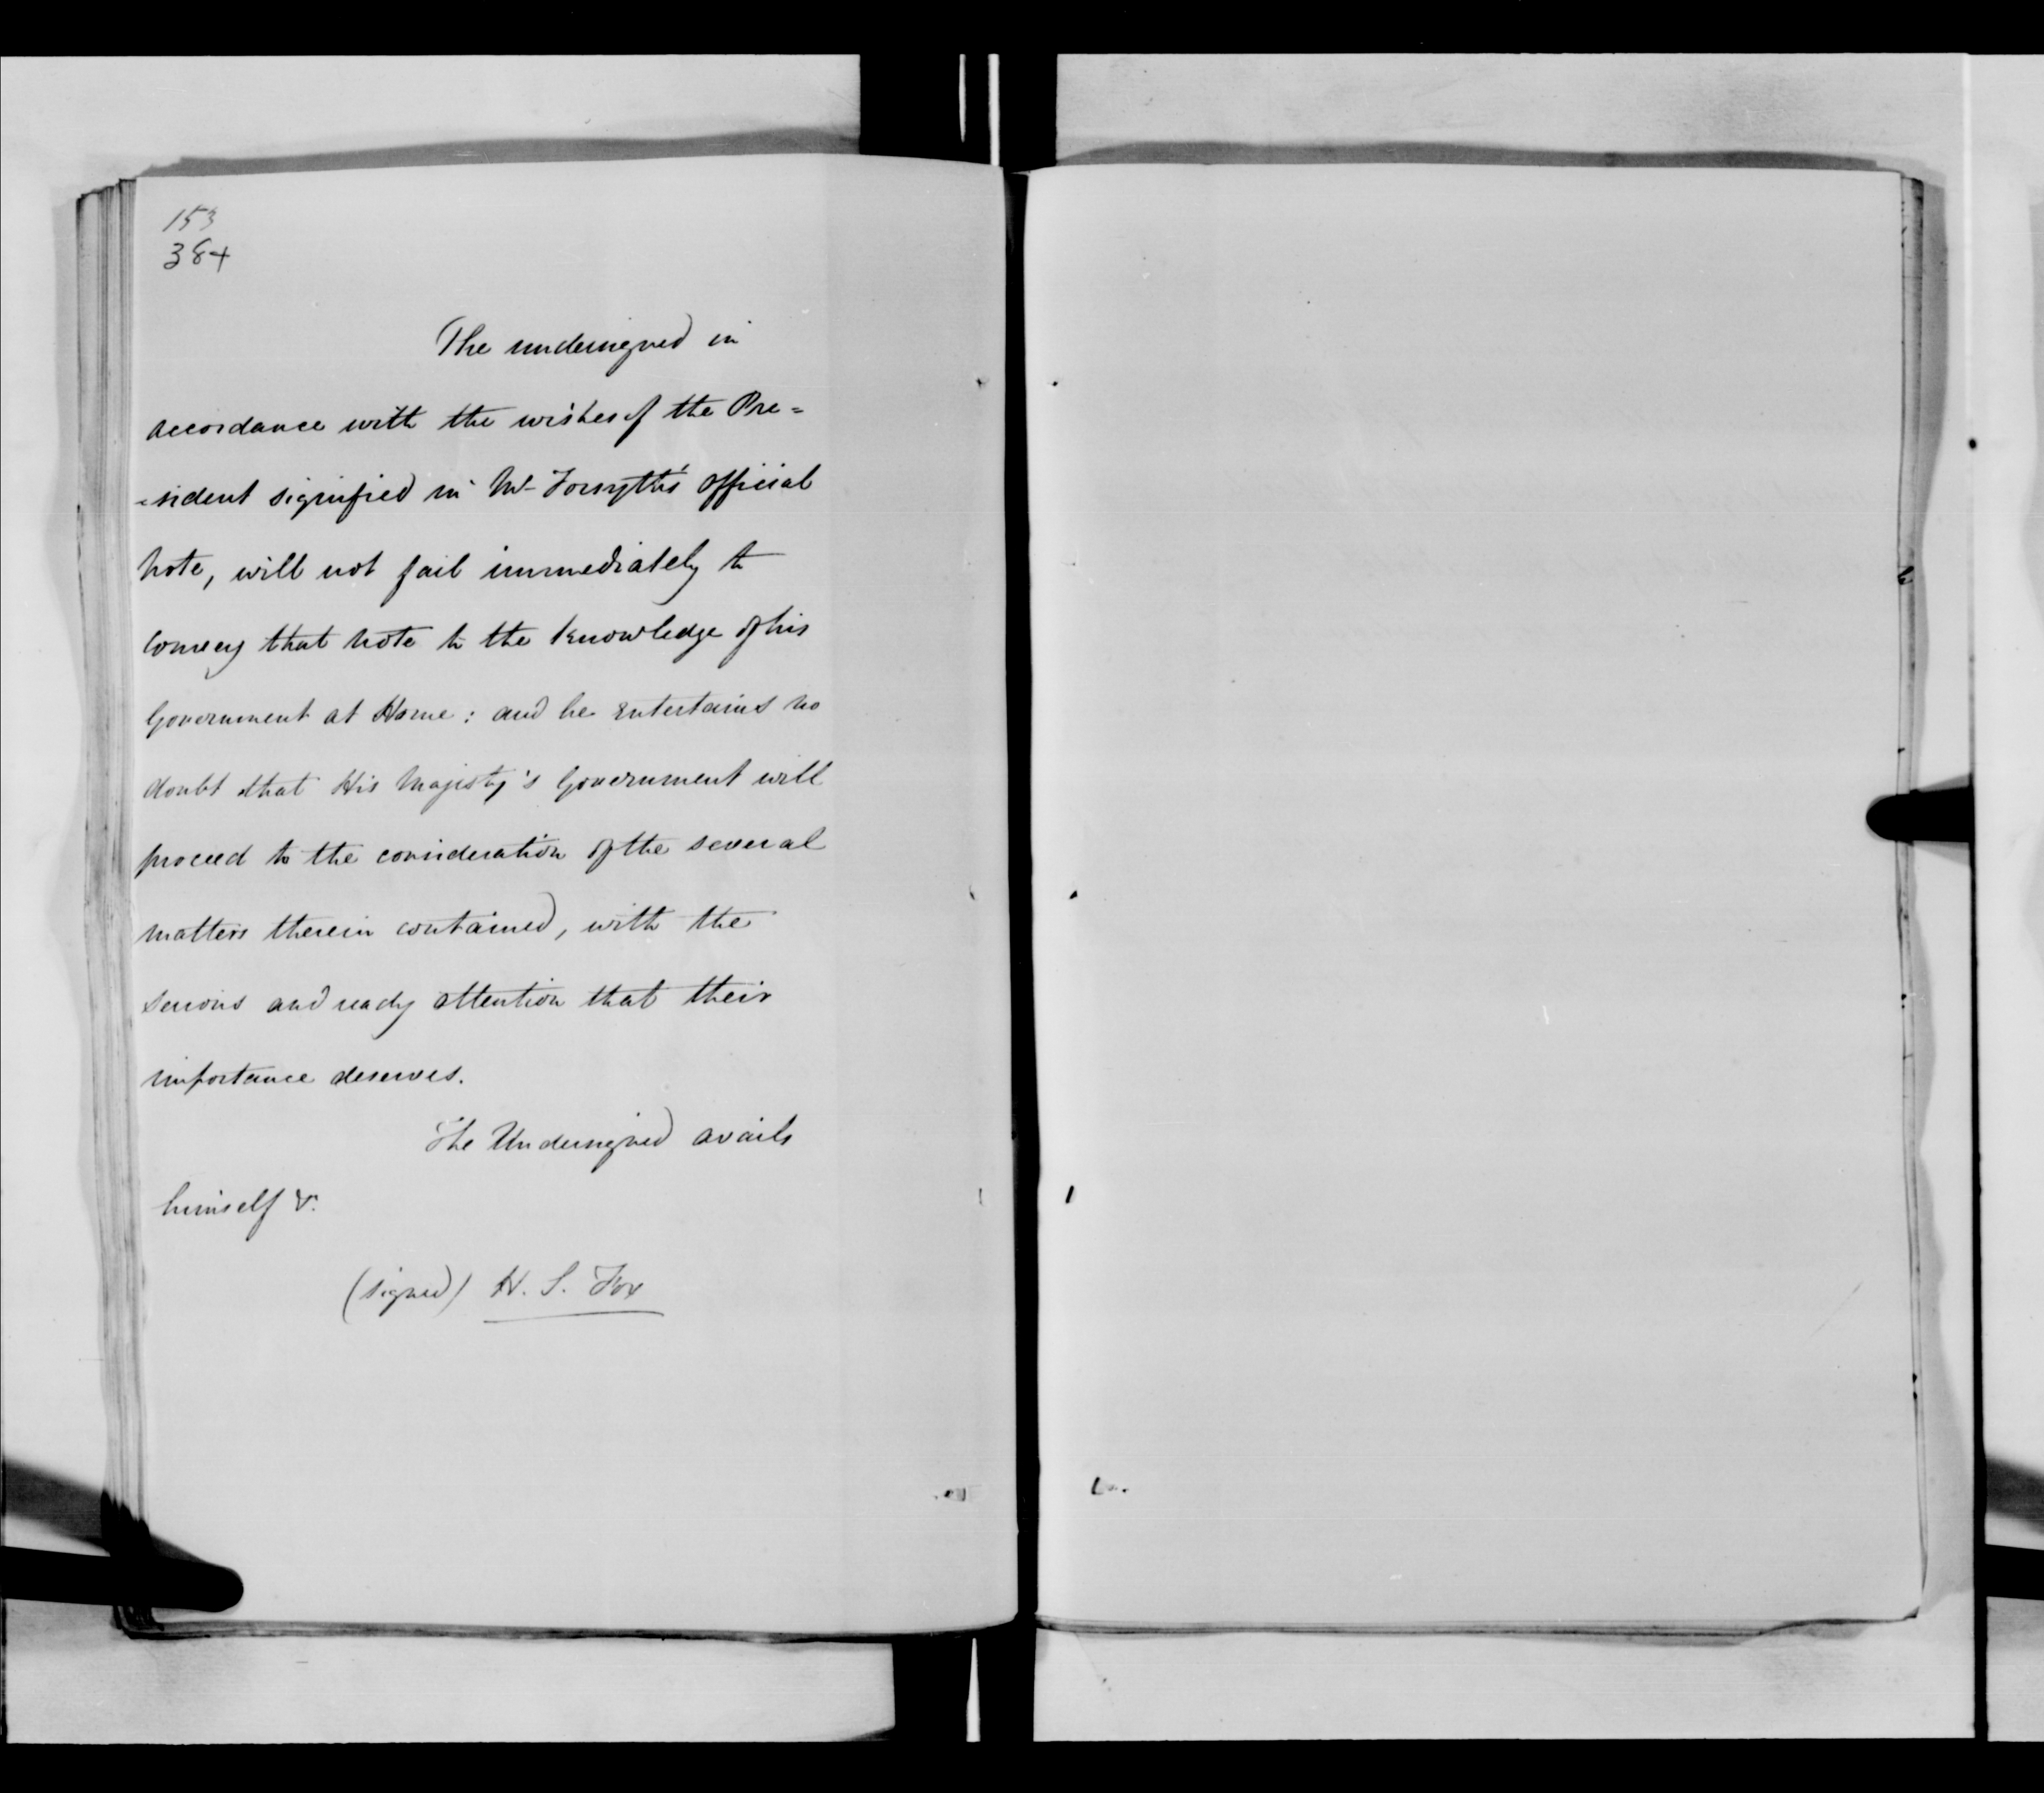 153
384
The undersigned in
accordance with the wishes of the Pre=
=sident signified in Mr. Forsyth's official
note, will not fail immediately to
convey that note to the knowledge of his
Government at Home: and he entertains no
doubt that His Majesty's Government will
proceed to the consideration of the several
matters therein contained, with the
serious and ready attention that their
importance deserves.
The Undersigned avails
himself &c.
(signed) H. S. Fox